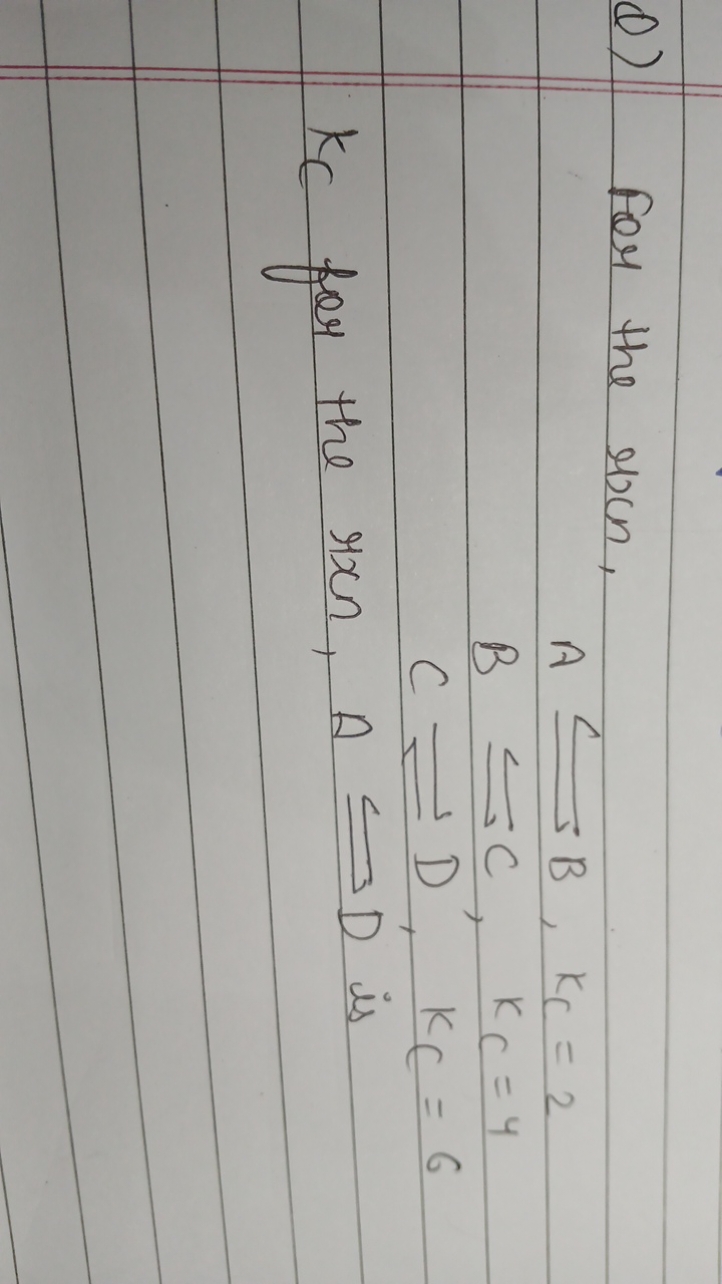 Q)
For the rxn,
A ⇌ B, Kc = 2
B ⇌ C, Kc = 4
C ⇌ D, Kc = 6
Kc for the rxn, A ⇌ D is